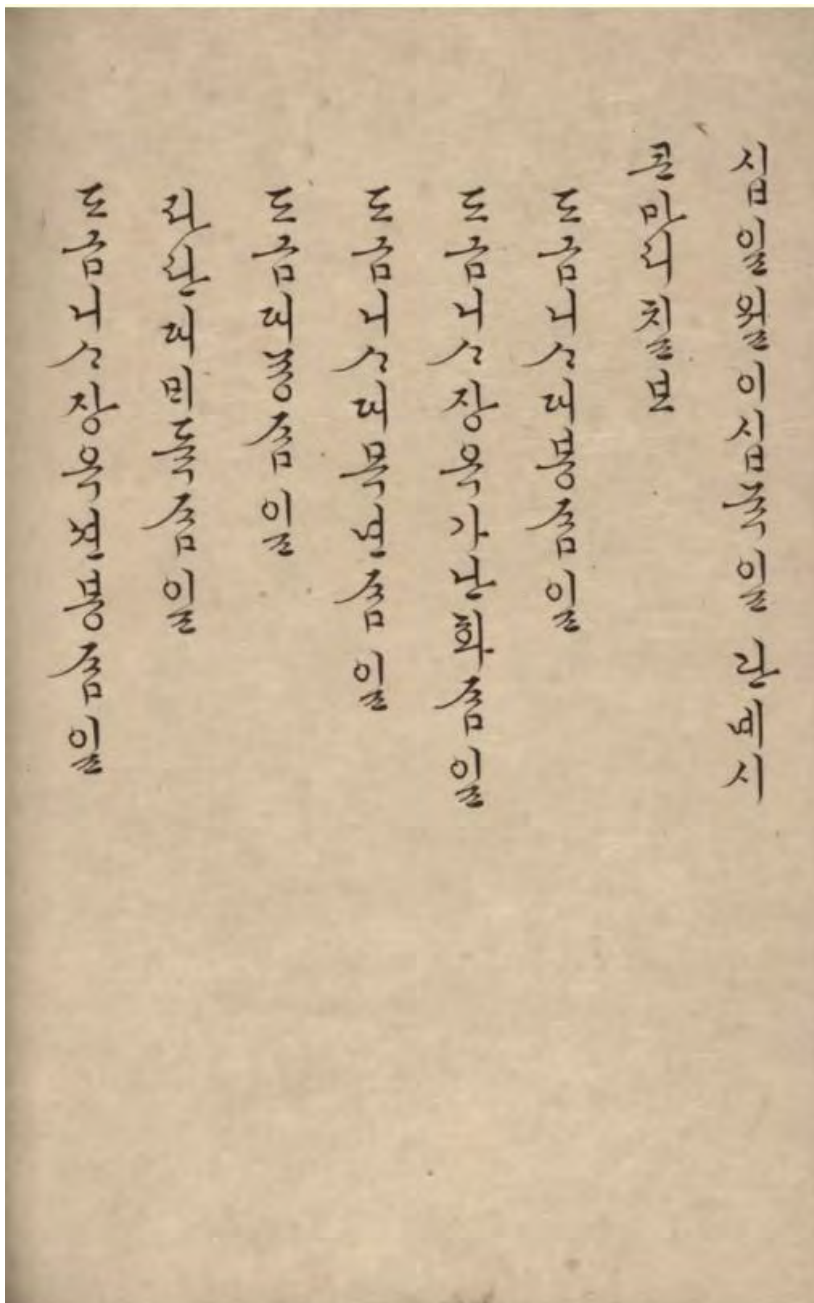 십일월이십뉵일 시
큰마리칠보
도금니ᄉᆞ대봉ᄌᆞᆷ일
도금니ᄉᆞ장옥가난화ᄌᆞᆷ일
도금니ᄉᆞ대목년ᄌᆞᆷ일
도금대뇽ᄌᆞᆷ일
대ᄆᆡ듁ᄌᆞᆷ일
도금니ᄉᆞ장옥션봉ᄌᆞᆷ일